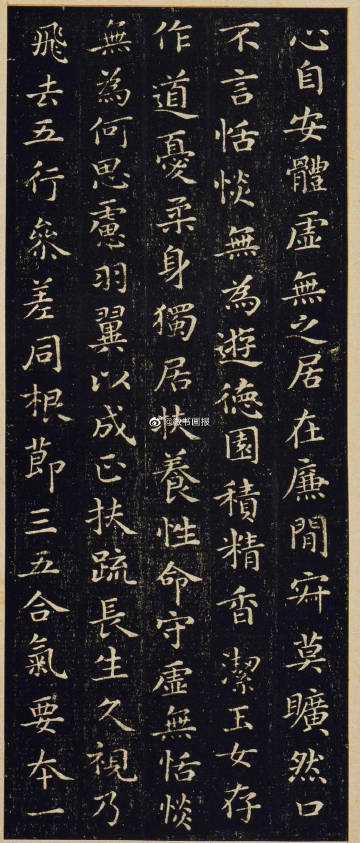 心自安體虛無之居在廉間㝥莫曠然口
不言恬惔無為遊德園積精香潔玉女存
作道憂柔身獨居扶養性命守虛無恬惔
無為何思慮羽翼以成正扶疏長生久視乃
飛去五行參差同根節三五合氣要本一